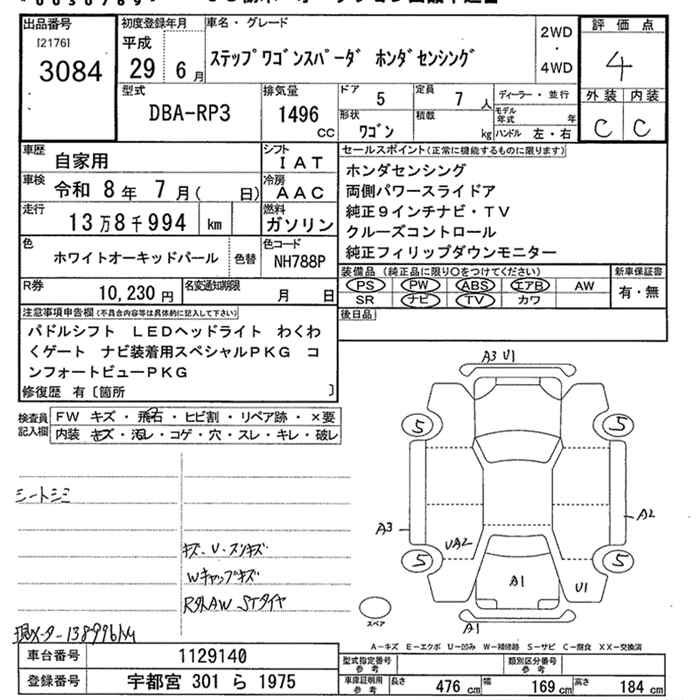 出品番号 初度登録年月 車名・グレード 2WD ・ 4WD 評価点
[2176] 3084 平成 29 6月 ステップワゴンスパーダ ホンダセンシング 4
外装 内装 C C
型式 排気量 ドア 5 定員 7人 ディーラー・並行
DBA-RP3 1496 cc 形状 ワゴン 積載 kg モデル年式 年 ハンドル 左・右
車歴 自家用 シフト IAT セールスポイント(正常に機能するものに限ります)
車検 令和 8年 7月( 日) 冷房 AAC ホンダセンシング
両側パワースライドア
走行 13万8千994 km 燃料 ガソリン 純正9インチナビ・TV
クルーズコントロール
色 ホワイトオーキッドパール 色替 色コード NH788P 純正フィリップダウンモニター
装備品(純正品に限り○をつけてください) 新車保証書
R券 10,230円 名変通知期限 月 日 PS PW ABS エアB AW 有・無
SR ナビ TV カワ
注意事項申告欄(不具合内容等は具体的に記入して下さい) 後日品
パドルシフト LEDヘッドライト わくわ
くゲート ナビ装着用スペシャルPKG コ
ンフォートビューPKG
修復歴 有〔箇所 〕
検査員記入欄 FW キズ・飛石・ヒビ割・リペア跡・×要
内装 キズ・汚レ・コゲ・穴・スレ・キレ・破レ
A3 U1
5 5
シートシミ
A3 A2
UA2
キズ・U・スリキズ
5 5
Wキャップキズ
A1 U1
スペア
A1
A-キズ E-エクボ U-凹み W-補修跡 S-サビ C-腐食 XX-交換済
車台番号 1129140 型式指定番号 参考 類別区分番号 参考
登録番号 宇都宮 301 ら 1975 車庫証明用 参考 長さ 476 cm 幅 169 cm 高さ 184 cm